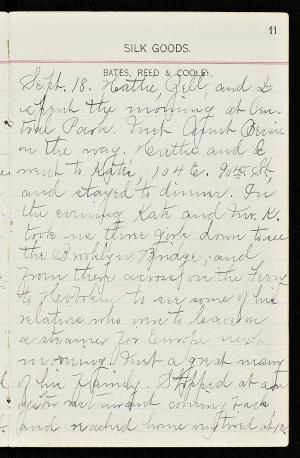 11
SILK GOODS.
BATES, REED & COOLEY.
Sept. 18. Hattie, Nell, and I
spent the morning at Cen-
tral Park. Met Aunt Bessie
on the way. Hattie and I
went to Kate's, 104 E. 90th St,
and stayed to dinner. In
the evening Kate and Mr. K.
took us three girls down to see
the Brooklyn Bridge, and
from there across on the Ferry
to Hoboken to see some of his
relatives who were to leave on
a steamer for Europe next
morning. Met a great many
of his friends. Stopped at an
oyster restaurant coming back
and reached home tired at 12